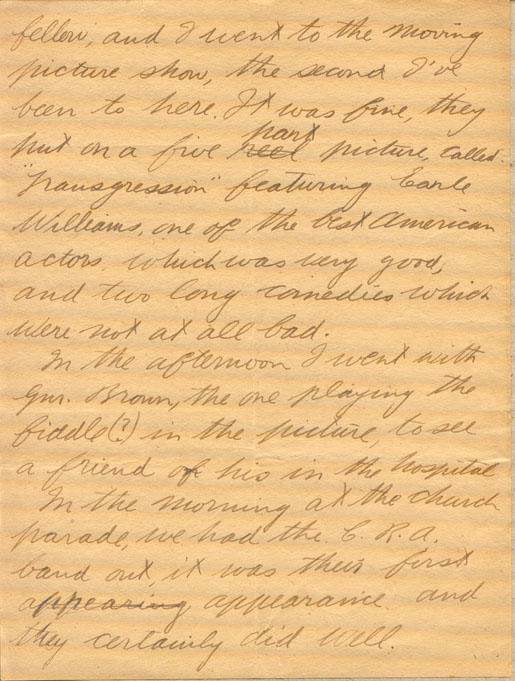 fellow, and I went to the moving
picture show, the second I've
been to here. It was fine, they
part
put on a five reel picture, called
"Transgression" featuring Earle
Williams, one of the best American
actors, which was very good,
and two long comedies which
were not at all bad.
In the afternoon I went with
Gnr. Brown, the one playing the
fiddle(?) in the picture, to see
a friend of his in the hospital
In the morning at the church
parade, we had the C.R.A.
band out, it was their first
appearing appearance and
they certainly did well.